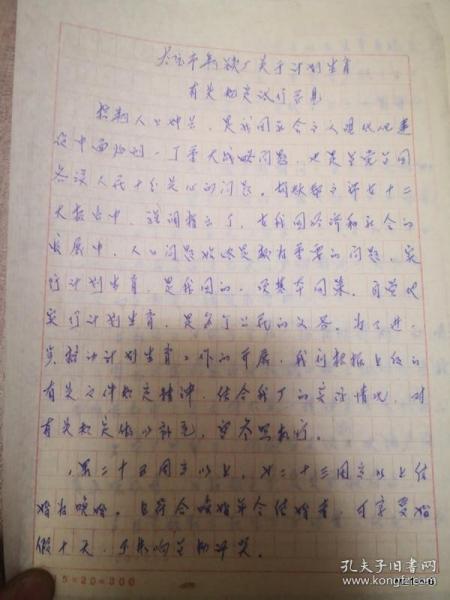 关于计划生育
有关规定试行意见
控制人口增长，是我国社会主义现代化建
设中面临的一个重大战略问题，也是全党全国
各族人民十分关心的问题。胡耀邦主席在十二
大报告中，强调指出了，在我国经济和社会的
发展中，人口问题始终是极为重要的问题，实
行计划生育，是我国的一项基本国策。
实行计划生育，是每个公民的义务。为了进一
计划生育工作的开展，我们根据上级的
有关文件规定精神，结合我厂的实际情况，对
有关规定作以补充，望参照执行。
男二十五周岁以上，女二十三周岁以上结
婚为晚婚。且符合晚婚年令结婚者，可享受婚
假十天，不影响全勤评奖。
15×20=300
孔夫子旧书网